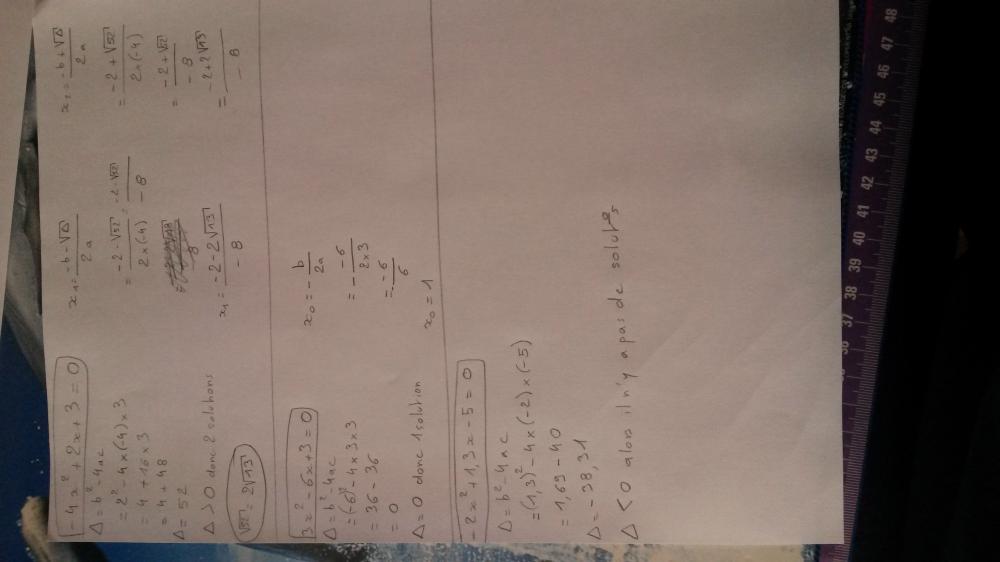 -4x² + 2x + 3 = 0
Δ = b² - 4ac
= 2² - 4 x (-4) x 3
= 4 + 16 x 3
= 4 + 48
Δ = 52
Δ > 0 donc 2 solutions
√52 = 2√13
x₁ = (-b - √Δ) / 2a
= (-2 - √52) / (2 x (-4)) = (-2 - √52) / -8
x₁ = (-2 - 2√13) / -8
x₂ = (-b + √Δ) / 2a
= (-2 + √52) / (2 x (-4))
= (-2 + √52) / -8
= (-2 + 2√13) / -8
3x² - 6x + 3 = 0
Δ = b² - 4ac
= (-6)² - 4 x 3 x 3
= 36 - 36
= 0
Δ = 0 donc 1 solution
x₀ = - b / 2a
= - -6 / (2 x 3)
= - -6 / 6
x₀ = 1
-2x² + 1,3x - 5 = 0
Δ = b² - 4ac
= (1,3)² - 4 x (-2) x (-5)
= 1,69 - 40
Δ = -38,31
Δ < 0 alors il n'y a pas de solut°s
37 38 39 40 41 42 43 44 45 46 47 48